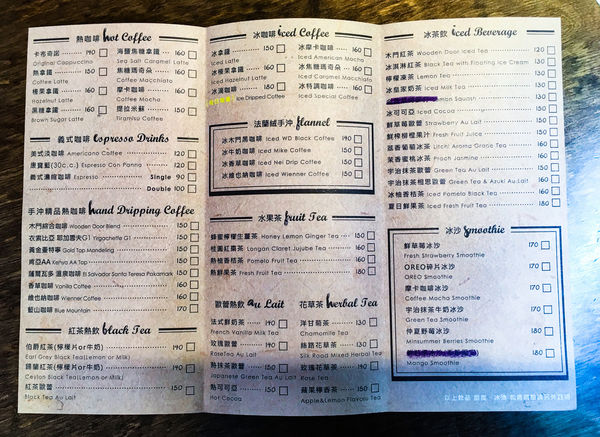 熱咖啡 hot Coffee
卡布奇諾 140
Original Cappuccino
熱拿鐵 150
Coffee Latte
榛果拿鐵 160
Hazelnut Latte
黑糖拿鐵 160
Brown Sugar Latte
海鹽焦糖拿鐵 160
Sea Salt Caramel Latte
焦糖瑪奇朵 160
Caramel Macchiato
摩卡咖啡 160
Coffee Mocha
提拉米蘇 150
Tiramisu/Coffee
義式咖啡 Espresso Drinks
美式淡咖啡 Americano Coffee 120
康寶藍(30c.c.) Espresso Con Panna 120
義式濃縮咖啡 Espresso Single 90
Double 100
手沖精品熱咖啡 hand Dripping Coffee
木門綜合咖啡 Wooden Door Blend 150
衣索比亞 耶加雪夫G1 Yirgacheffe G1
黃金曼特寧 Gold Top Mandeling 150
肯亞AA Kehya AA Top 150
薩爾瓦多 Santa Teresa Pakamara
香草咖啡 Vanilla Coffee 160
維也納咖啡 Wienner Coffee 160
藍山咖啡 Blue Mountain 170
紅茶熱飲 black Tea
伯爵紅茶(檸檬片or牛奶) 140
Earl Grey Black Tea(Lemon or Milk)
錫蘭紅茶(檸檬片or牛奶) 150
Ceylon Black Tea(Lemon or Milk)
紅茶歐蕾 150
Black Tea Au Lait
冰咖啡 iced Coffee
冰拿鐵 150
Iced Latte
冰榛果拿鐵 160
Iced Hazelnut Latte
冰滴咖啡 150
Ice Dripped Coffee
冰摩卡咖啡 160
Iced American Mocha
冰焦糖瑪奇朵 160
Iced Caramel Macchiato
冰特調咖啡 160
Iced Special Coffee
法蘭絨手沖 flannel
冰木門黑咖啡 Iced WD Black Coffee 140
冰牛奶咖啡 Iced Mike Coffee 150
冰香草咖啡 Iced Nei Drip Coffee 150
冰維也納咖啡 Iced Wienner Coffee 150
水果茶 fruit Tea
蜂蜜檸檬生薑茶 Honey Lemon Ginger Tea 150
桂圓紅棗茶 Longan Claret Jujube Tea 160
熱柚香桔茶 Pomelo Fruit Tea 160
熱鮮果茶 Fresh Fruit Tea 180
歐蕾熱飲 au Lait
法式鮮奶茶 140
French Vanilla Milk Tea
玫瑰歐蕾 140
RoseTea Au Lait
熱抹茶歐蕾 150
Japanese Green Tea Au Lait
熱可可亞 150
Hot Cocoa
花草茶 herbal Tea
洋甘菊茶 130
Chamomile Tea
絲路花草茶 130
Silk Road Mixed Herbal Tea
玫瑰花草茶 140
Rose Tea
蘋果檸香茶 150
Apple&Lemon Flavors Tea
冰茶飲 iced Beverage
木門紅茶 Wooden Door Iced Tea 120
冰淇淋紅茶 Black Tea with Floating Ice Cream 130
檸檬凍茶 Lemon Tea 130
冰皇家奶茶 Iced Milk Tea 150
Lemon Squash 150
冰可可亞 Iced Cocoa 150
鮮草莓歐蕾 Strawberry Au Lait 150
鮮榨柳橙果汁 Fresh Fruit Juice 150
茘香葡萄茶 Litchi Aroma Grace Tea 160
茉香蜜桃茶 Peach Jasmine 160
宇治抹茶歐蕾 Green Tea Au Lait 150
宇治抹茶相思歐蕾 Green Tea & Azuki Au.Lait 160
冰柚香桔茶 Iced Pomelo Black Tea 160
夏日鮮果茶 Iced Fresh Fruit Tea 180
冰沙 smoothie
鮮草莓冰沙 170
Fresh Strawberry Smoothie
OREO碎片冰沙 170
OREO Smoothie
摩卡咖啡冰沙 170
Coffee Mocha Smoothie
宇治抹茶牛奶冰沙 170
Green Tea Smoothie
仲夏野莓冰沙 180
Minsummer Berries Smoothie
180
Mango Smoothie